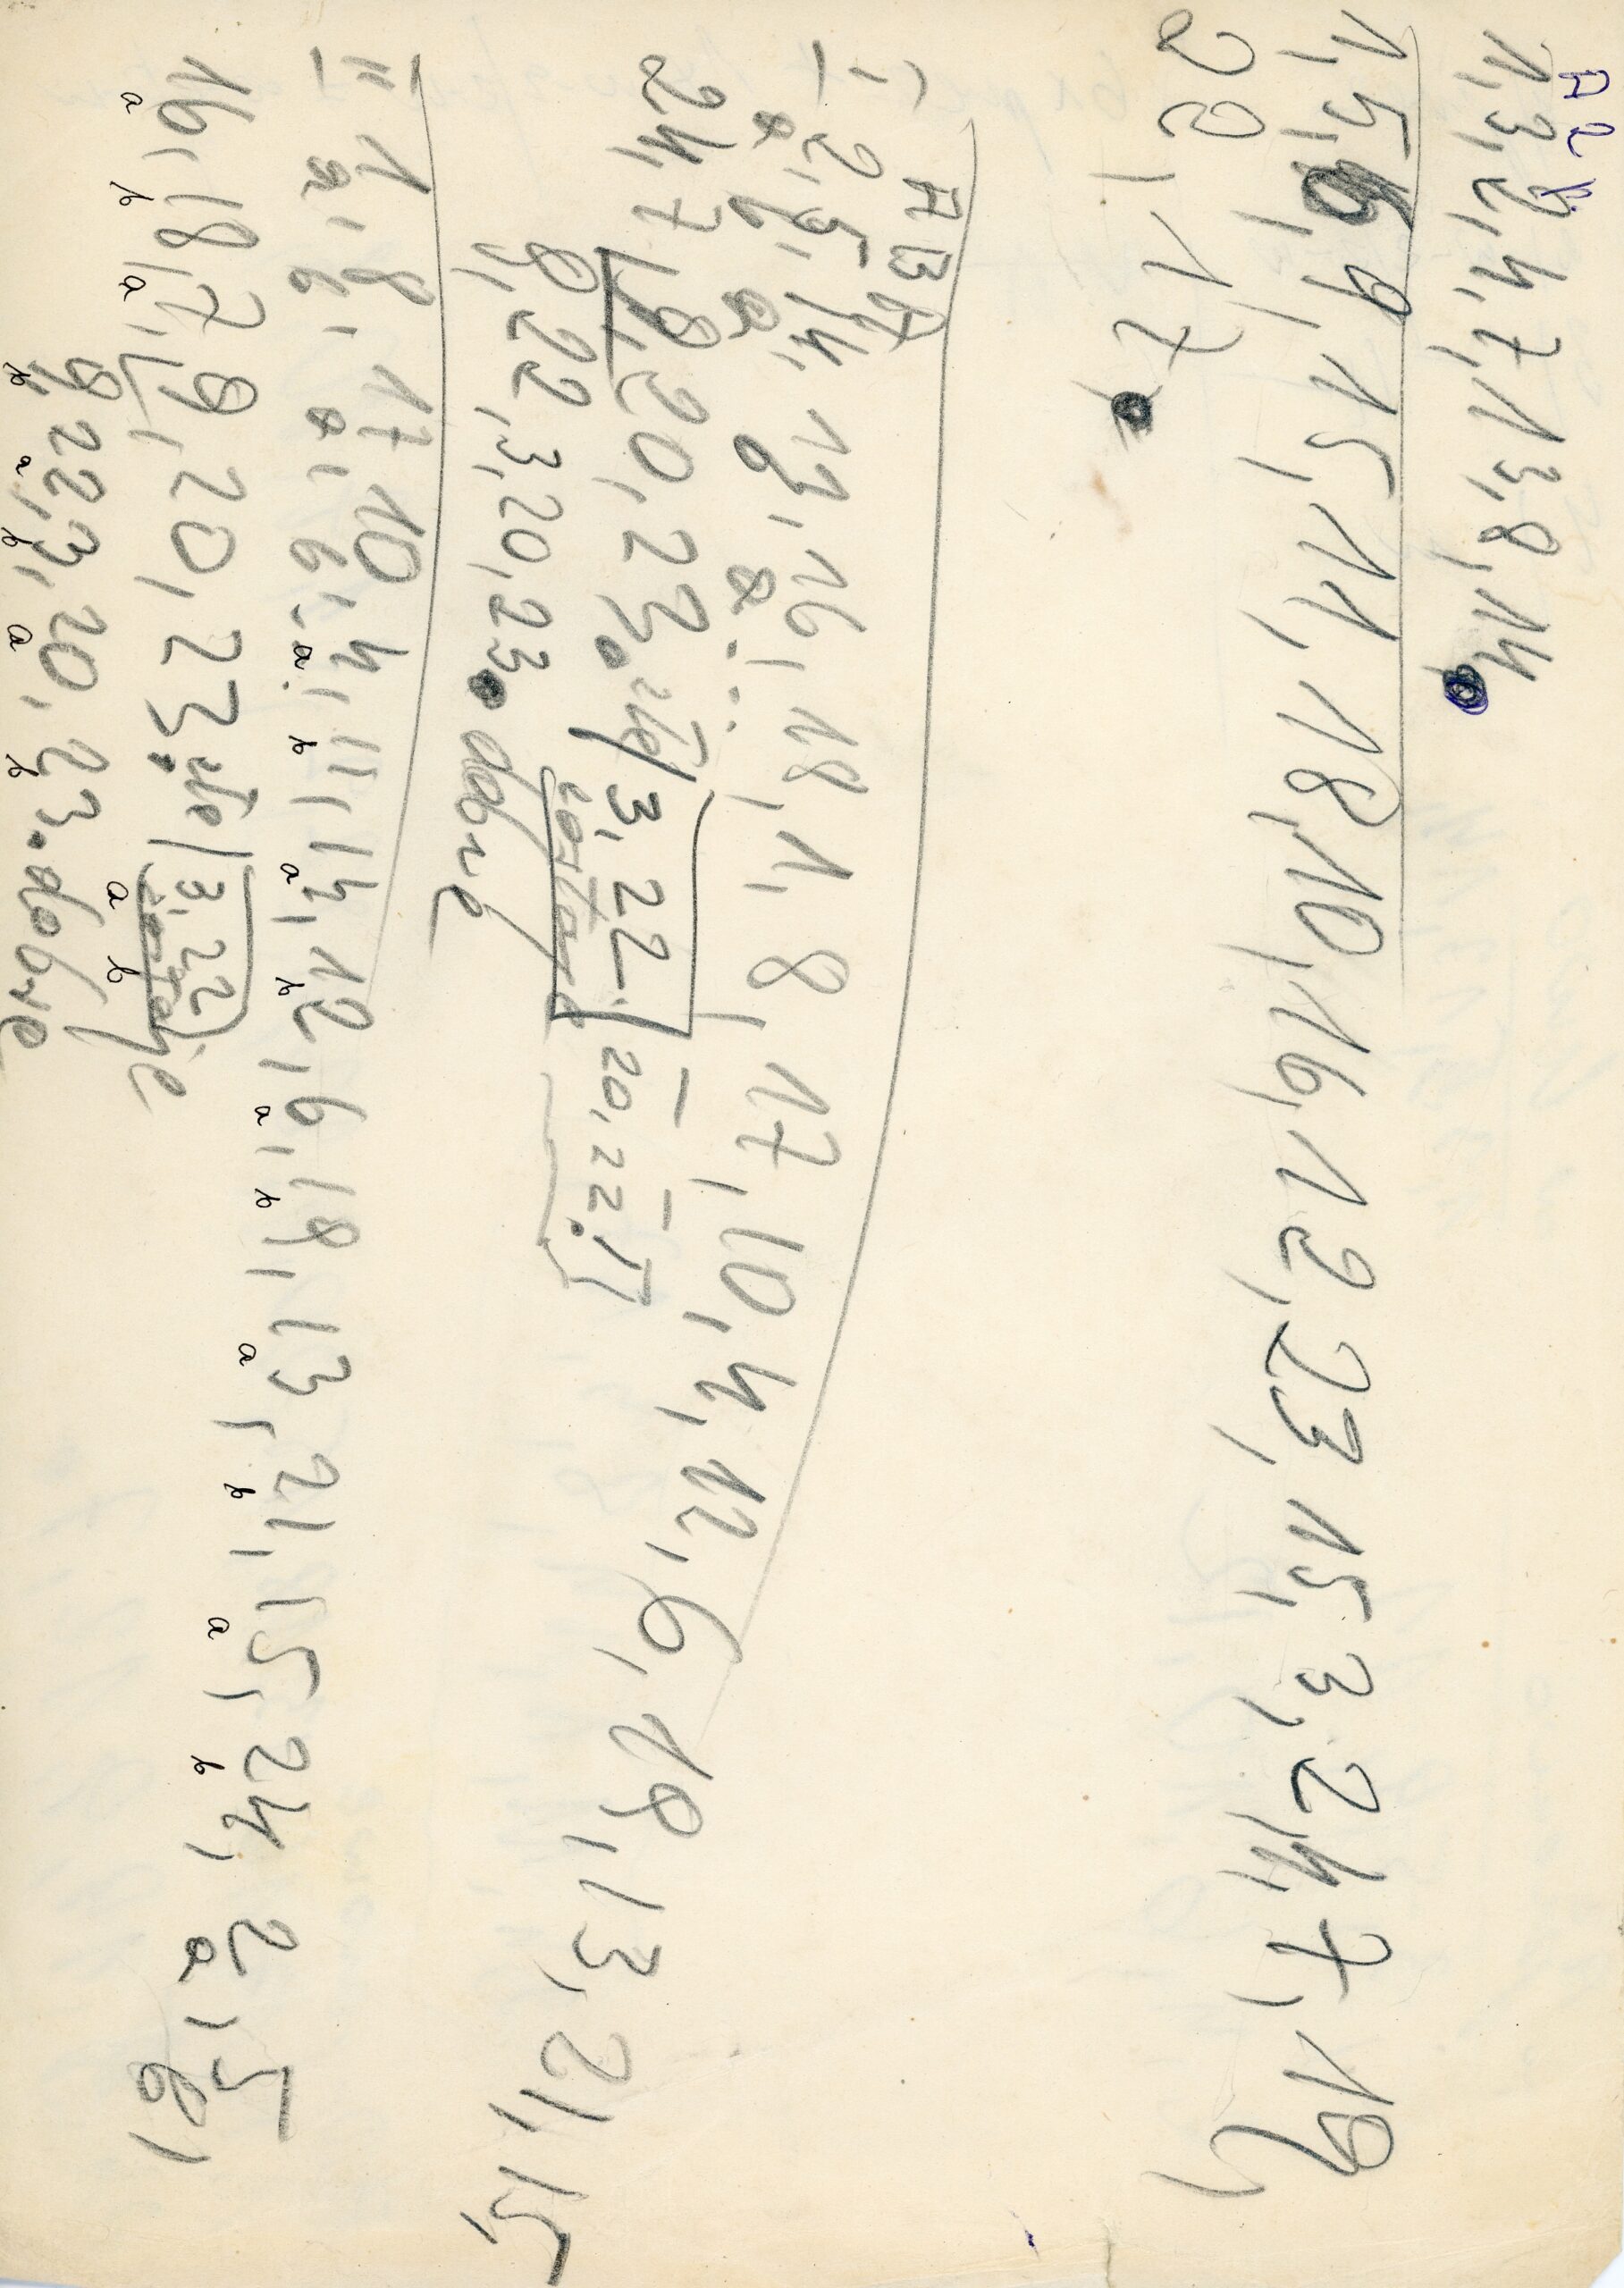 1, 3, 2, 4, 7, 13, 8, 14.
1, 5, 6, 9, 15, 11, 18, 10, 16, 12, 23, 15, 3, 24, 7, 19,
20, 17.
A B A
I 2, 5, 14, 13, 16, 18, 1, 8, 17, 10, 4, 12, 6, 18, 13, 21, 15,
a b a b a...
24, 7, 19, 20, 23. ale 3, 22. 20, 22.!!
zostaje
9, 22, 3, 20, 23. dobre
II 1, 8, 17, 10, 4, 11, 14, 12, 6, 18, 13, 21, 15, 24, 2, 5,
a, b, a, b, a b a b a b a b a b a, b,
16, 18, 7, 19, 20, 23. ale (3, 22)
a b a zostaje
9, 22, 3, 20, 23. dobre
b a b a b a b